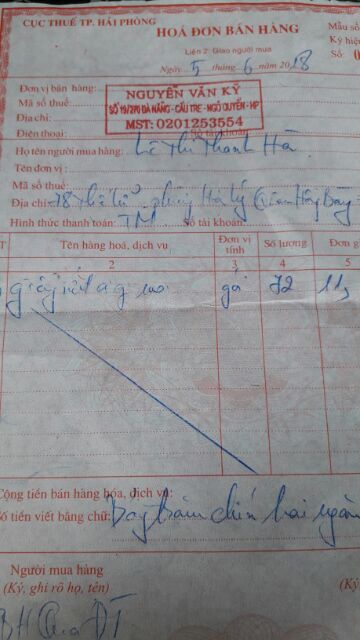 CỤC THUẾ TP. HẢI PHÒNG
HOÁ ĐƠN BÁN HÀNG
Mẫu số
Liên 2: Giao người mua
Ký hiệu
Ngày 5 tháng 6 năm 2018
Số: 0
Đơn vị bán hàng: NGUYỄN VĂN KỲ
Mã số thuế:
Địa chỉ: SỐ 19/270 ĐÀ NẴNG - CẦU TRE - NGÔ QUYỀN - HP
Điện thoại: MST: 0201253554 Số tài khoản
Họ tên người mua hàng: Lê Thị Thanh Hà
Tên đơn vị:
Mã số thuế:
Địa chỉ: phường Hạ Lý Q Hồng Bàng
Hình thức thanh toán: TM Số tài khoản:
T Tên hàng hoá, dịch vụ Đơn vị tính Số lượng Đơn g
2 3 4 5
giấy gói 72 11,
Cộng tiền bán hàng hóa, dịch vụ:
Số tiền viết bằng chữ: Bảy trăm chín hai ngàn
Người mua hàng
(Ký, ghi rõ họ, tên)
(Ký
BH Qua ĐT